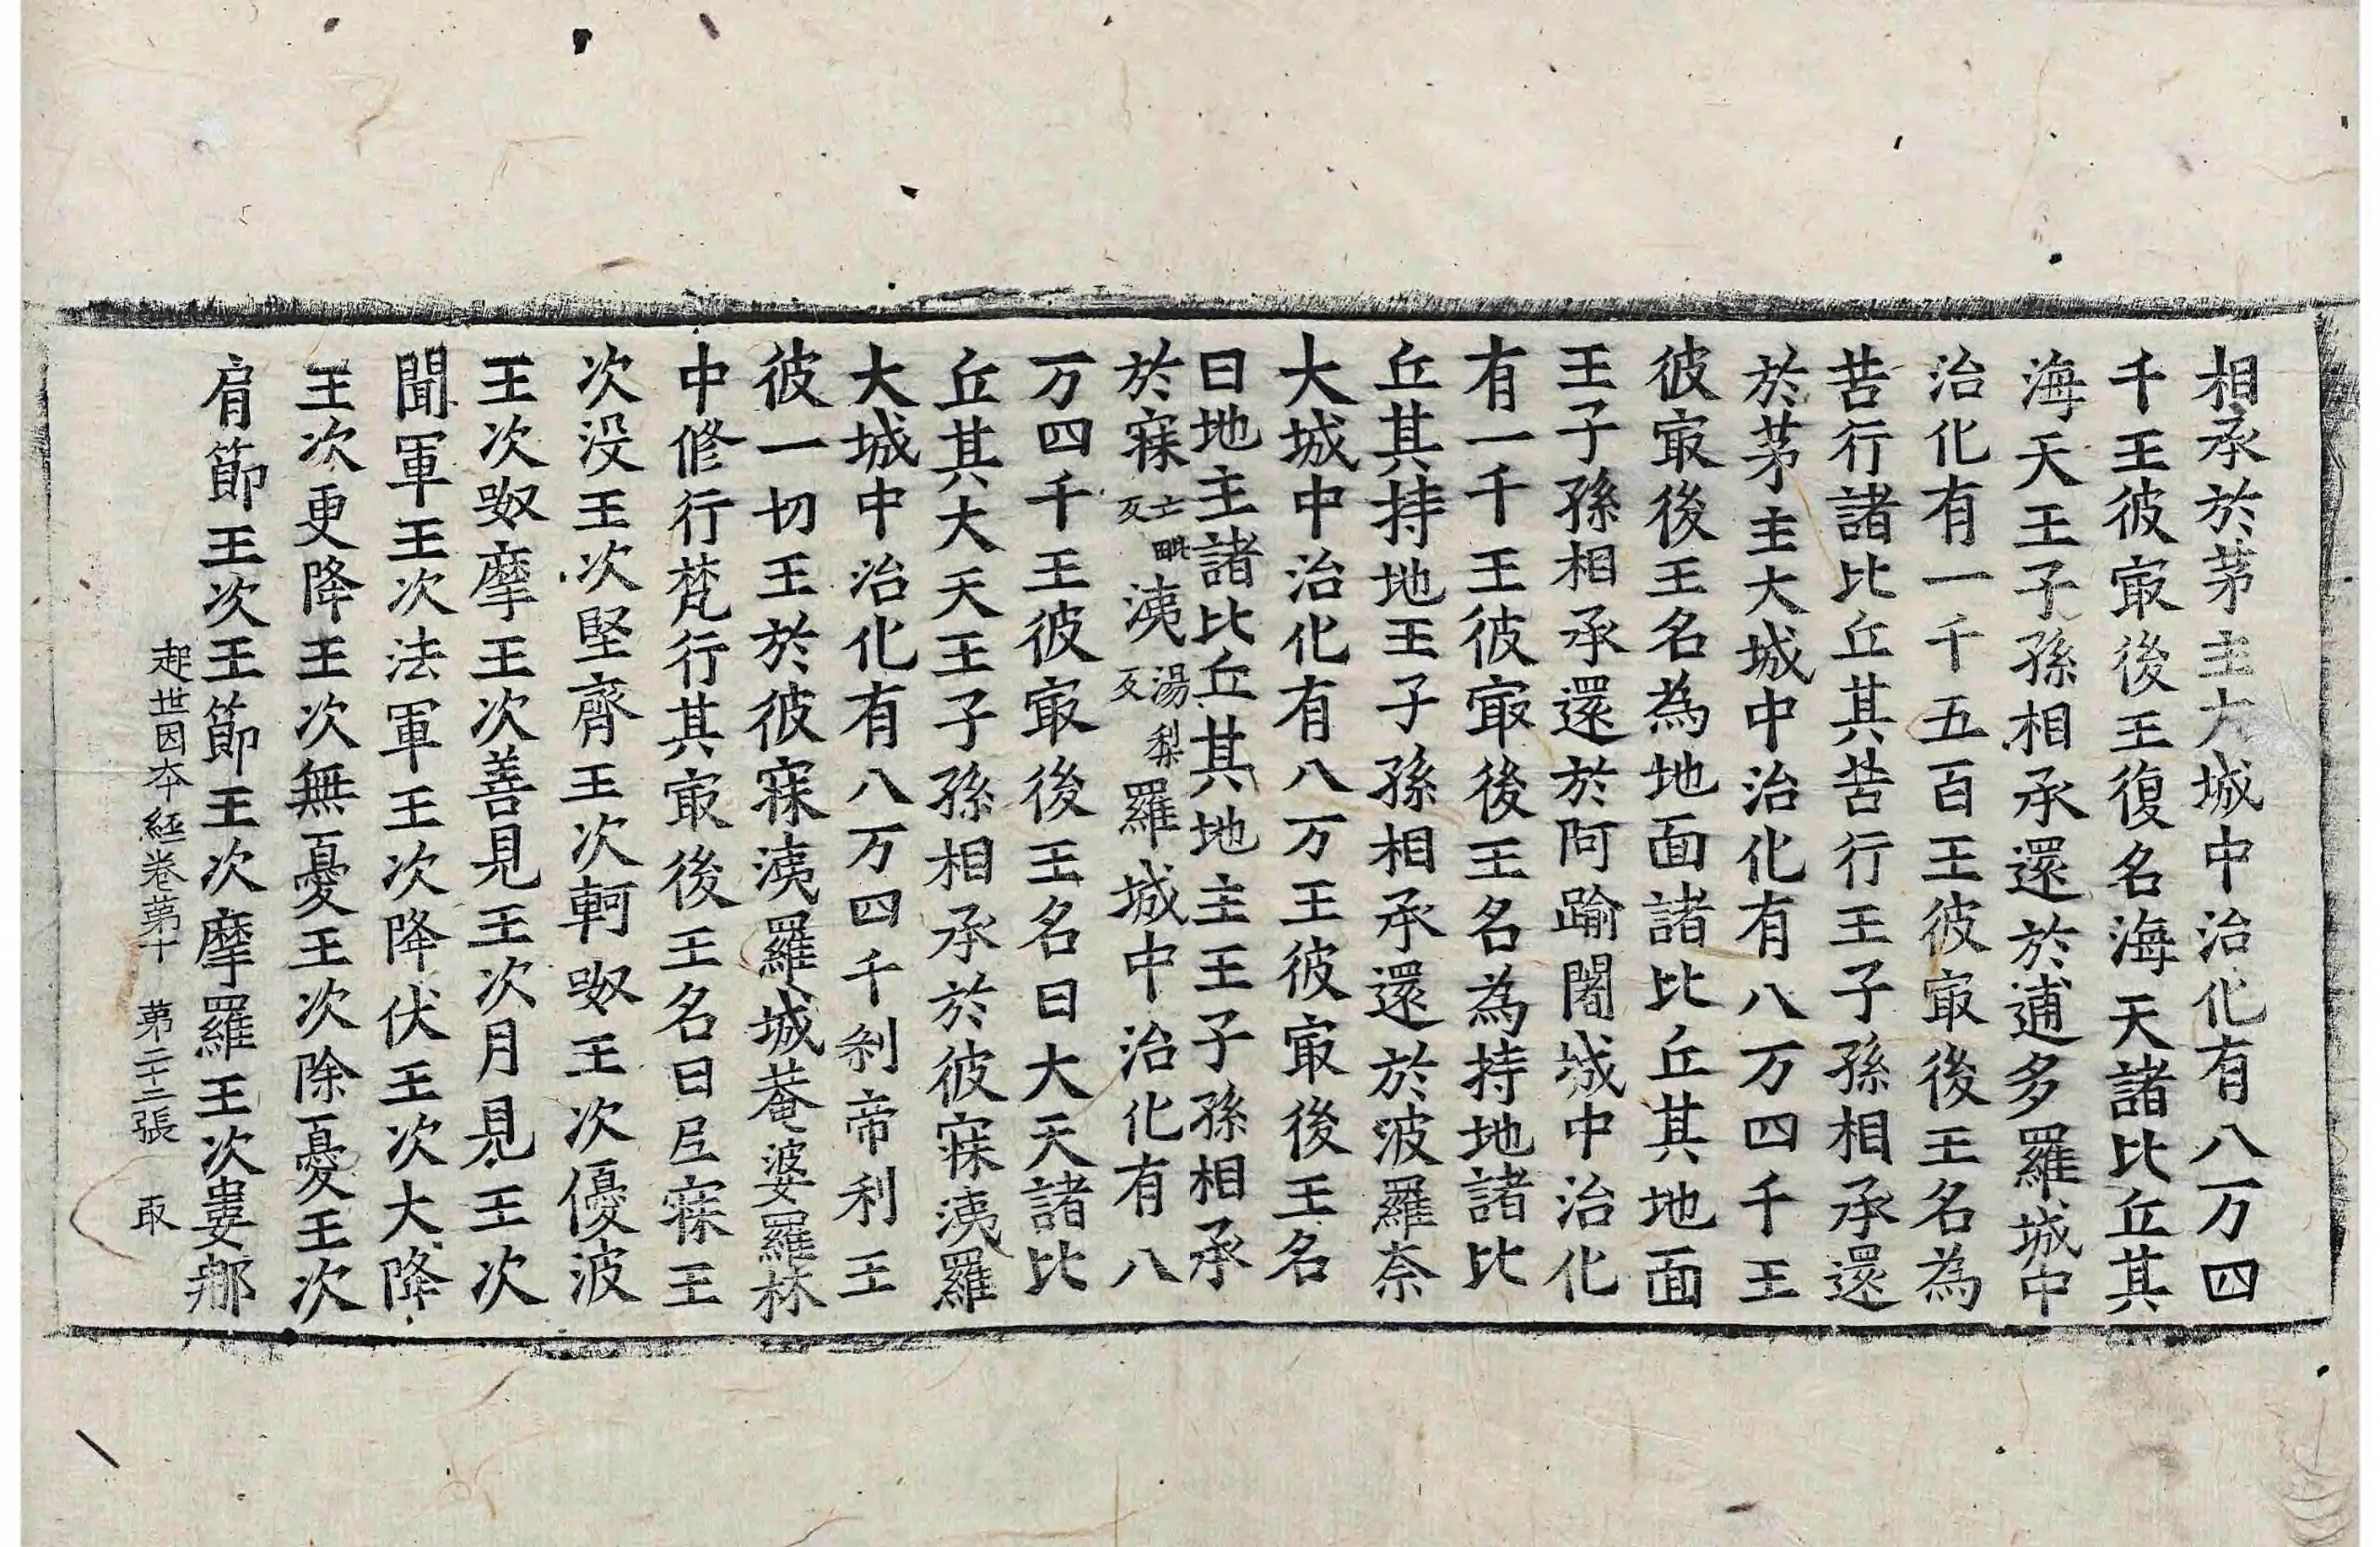 相承於茅主大城中治化有八万四
千王彼㝡後王復名海天諸比丘其
海天王子孫相承還於逋多羅城中
治化有一千五百王彼㝡後王名為
苦行諸比丘其苦行王子孫相承還
於茅主大城中治化有八万四千王
彼㝡後王名為地面諸比丘其地面
王子孫相承還於阿踰闍城中治化
有一千王彼㝡後王名為持地諸比
丘其持地王子孫相承還於波羅奈
大城中治化有八万王彼㝡後王名
曰地主諸比丘其地主王子孫相承
於寐亡毗反洟湯梨反羅城中治化有八
万四千王彼㝡後王名曰大天諸比
丘其大天王子孫相承於彼寐洟羅
大城中治化有八万四千刹帝利王
彼一切王於彼寐洟羅城菴婆羅林
中修行梵行其㝡後王名曰𡰱寐王
次没王次堅齊王次軻㚢王次優波
王次㚢摩王次善見王次月見王次
聞軍王次法軍王次降伏王次大降
王次更降王次無憂王次除憂王次
肩節王次王節王次摩羅王次婁㝹
起世因本経卷苐十 苐二十二張 取